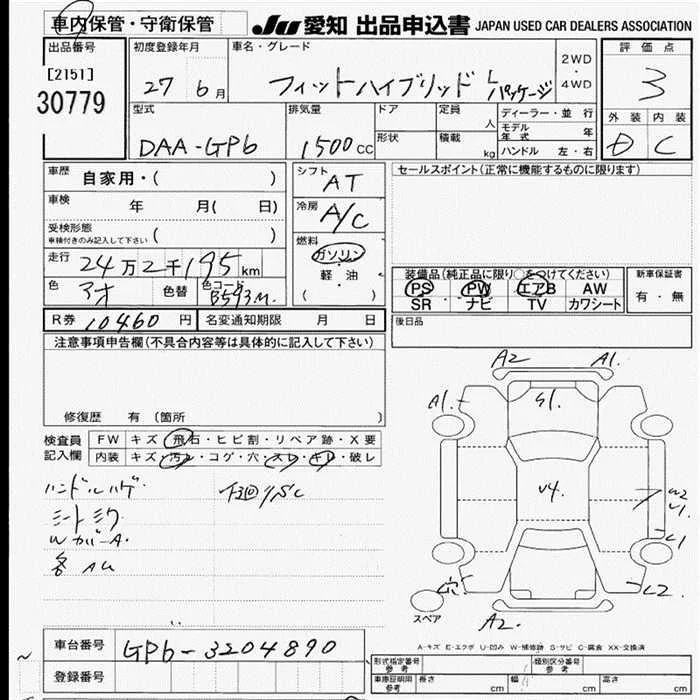 車内保管・守衛保管
JU 愛知 出品申込書 JAPAN USED CAR DEALERS ASSOCIATION
出品番号
[2151]
30779
初度登録年月
27 6月
車名・グレード
フィットハイブリッド Lパッケージ
2WD
・
4WD
評価点
3
外装 内装
D C
型式
DAA-GP6
排気量
1500cc
ドア
形状
定員
人
積載
kg
ディーラー・並行
モデル年式 年
ハンドル 左・右
車歴
自家用・( )
車検
年 月( 日)
受検形態
車検付きのみ記入して下さい ( )
走行
24万2千195km
色
アオ
色替
色コード
B593M
シフト
AT
冷房
A/C
燃料
ガソリン
・
軽油
・
( )
セールスポイント(正常に機能するものに限ります)
装備品(純正品に限り○をつけてください)
PS PW エアB AW
SR ナビ TV カワシート
新車保証書
有・無
後日品
R券 10460円
名変通知期限 月 日
注意事項申告欄(不具合内容等は具体的に記入して下さい)
修復歴 有 〔箇所 〕
検査員
記入欄
FW キズ・飛石・ヒビ割・リペア跡・X要
内装 キズ・汚レ・コゲ・穴・スレ・キレ・破レ
ハンドルハゲ
シートミク
WカバーA
各AU
下廻りSC
A2 A1.
A1.
S1.
U4.
W2
U1.
C1
穴
C2
A2.
スペア
A-キズ E-エクボ U-凹み W-補修跡 S-サビ C-腐食 XX-交換済
車台番号
GP6-3204890
登録番号
形式指定番号
参考
類別区分番号
参考
車庫証明用
参考
長さ cm 幅 cm 高さ cm